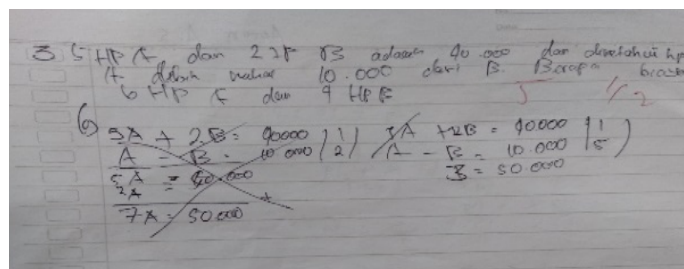 3 5 HP A dan 2 HP B adalah 90.000 dan diketahui hp
A lebih mahal 10.000 dari B. Berapa
6 HP A dan 9 HP B
5A + 2B = 90000 | 1 |
A - B = 10.000 | 2 |
5A = 90.000
2A
7A = 50.000
5A + 2B = 90000 | 1 |
A - B = 10.000 | 5 |
3 = 50.000